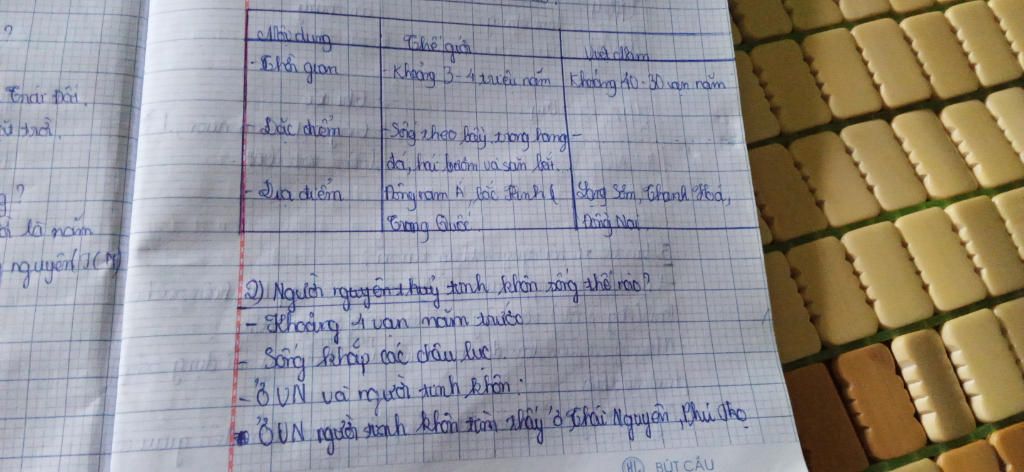 ?
Trái Đất.
?
là năm
nguyên (TCN)
Nội dung Thế giới Việt Nam
- Thời gian - Khoảng 3-4 triệu năm Khoảng 40-30 vạn năm
- Đặc điểm - Sống theo bầy, trong hang -
đá, hái lượm và săn bắt.
- Địa điểm Đông nam Á, Bắc Kinh ( Lạng Sơn, Thanh Hoá,
Trung Quốc. Đồng Nai
2) Người nguyên thuỷ tinh khôn sống thế nào?
- Khoảng 4 vạn năm trước
- Sống khắp các châu lục.
- Ở VN và người tinh khôn:
Ở VN người tinh khôn tìm thấy ở Thái Nguyên, Phú Thọ
BÚT CÂU